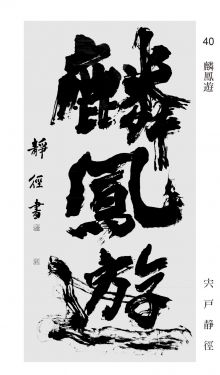 40 麟鳳遊
宍戸静徑
麟鳳遊
靜徑書